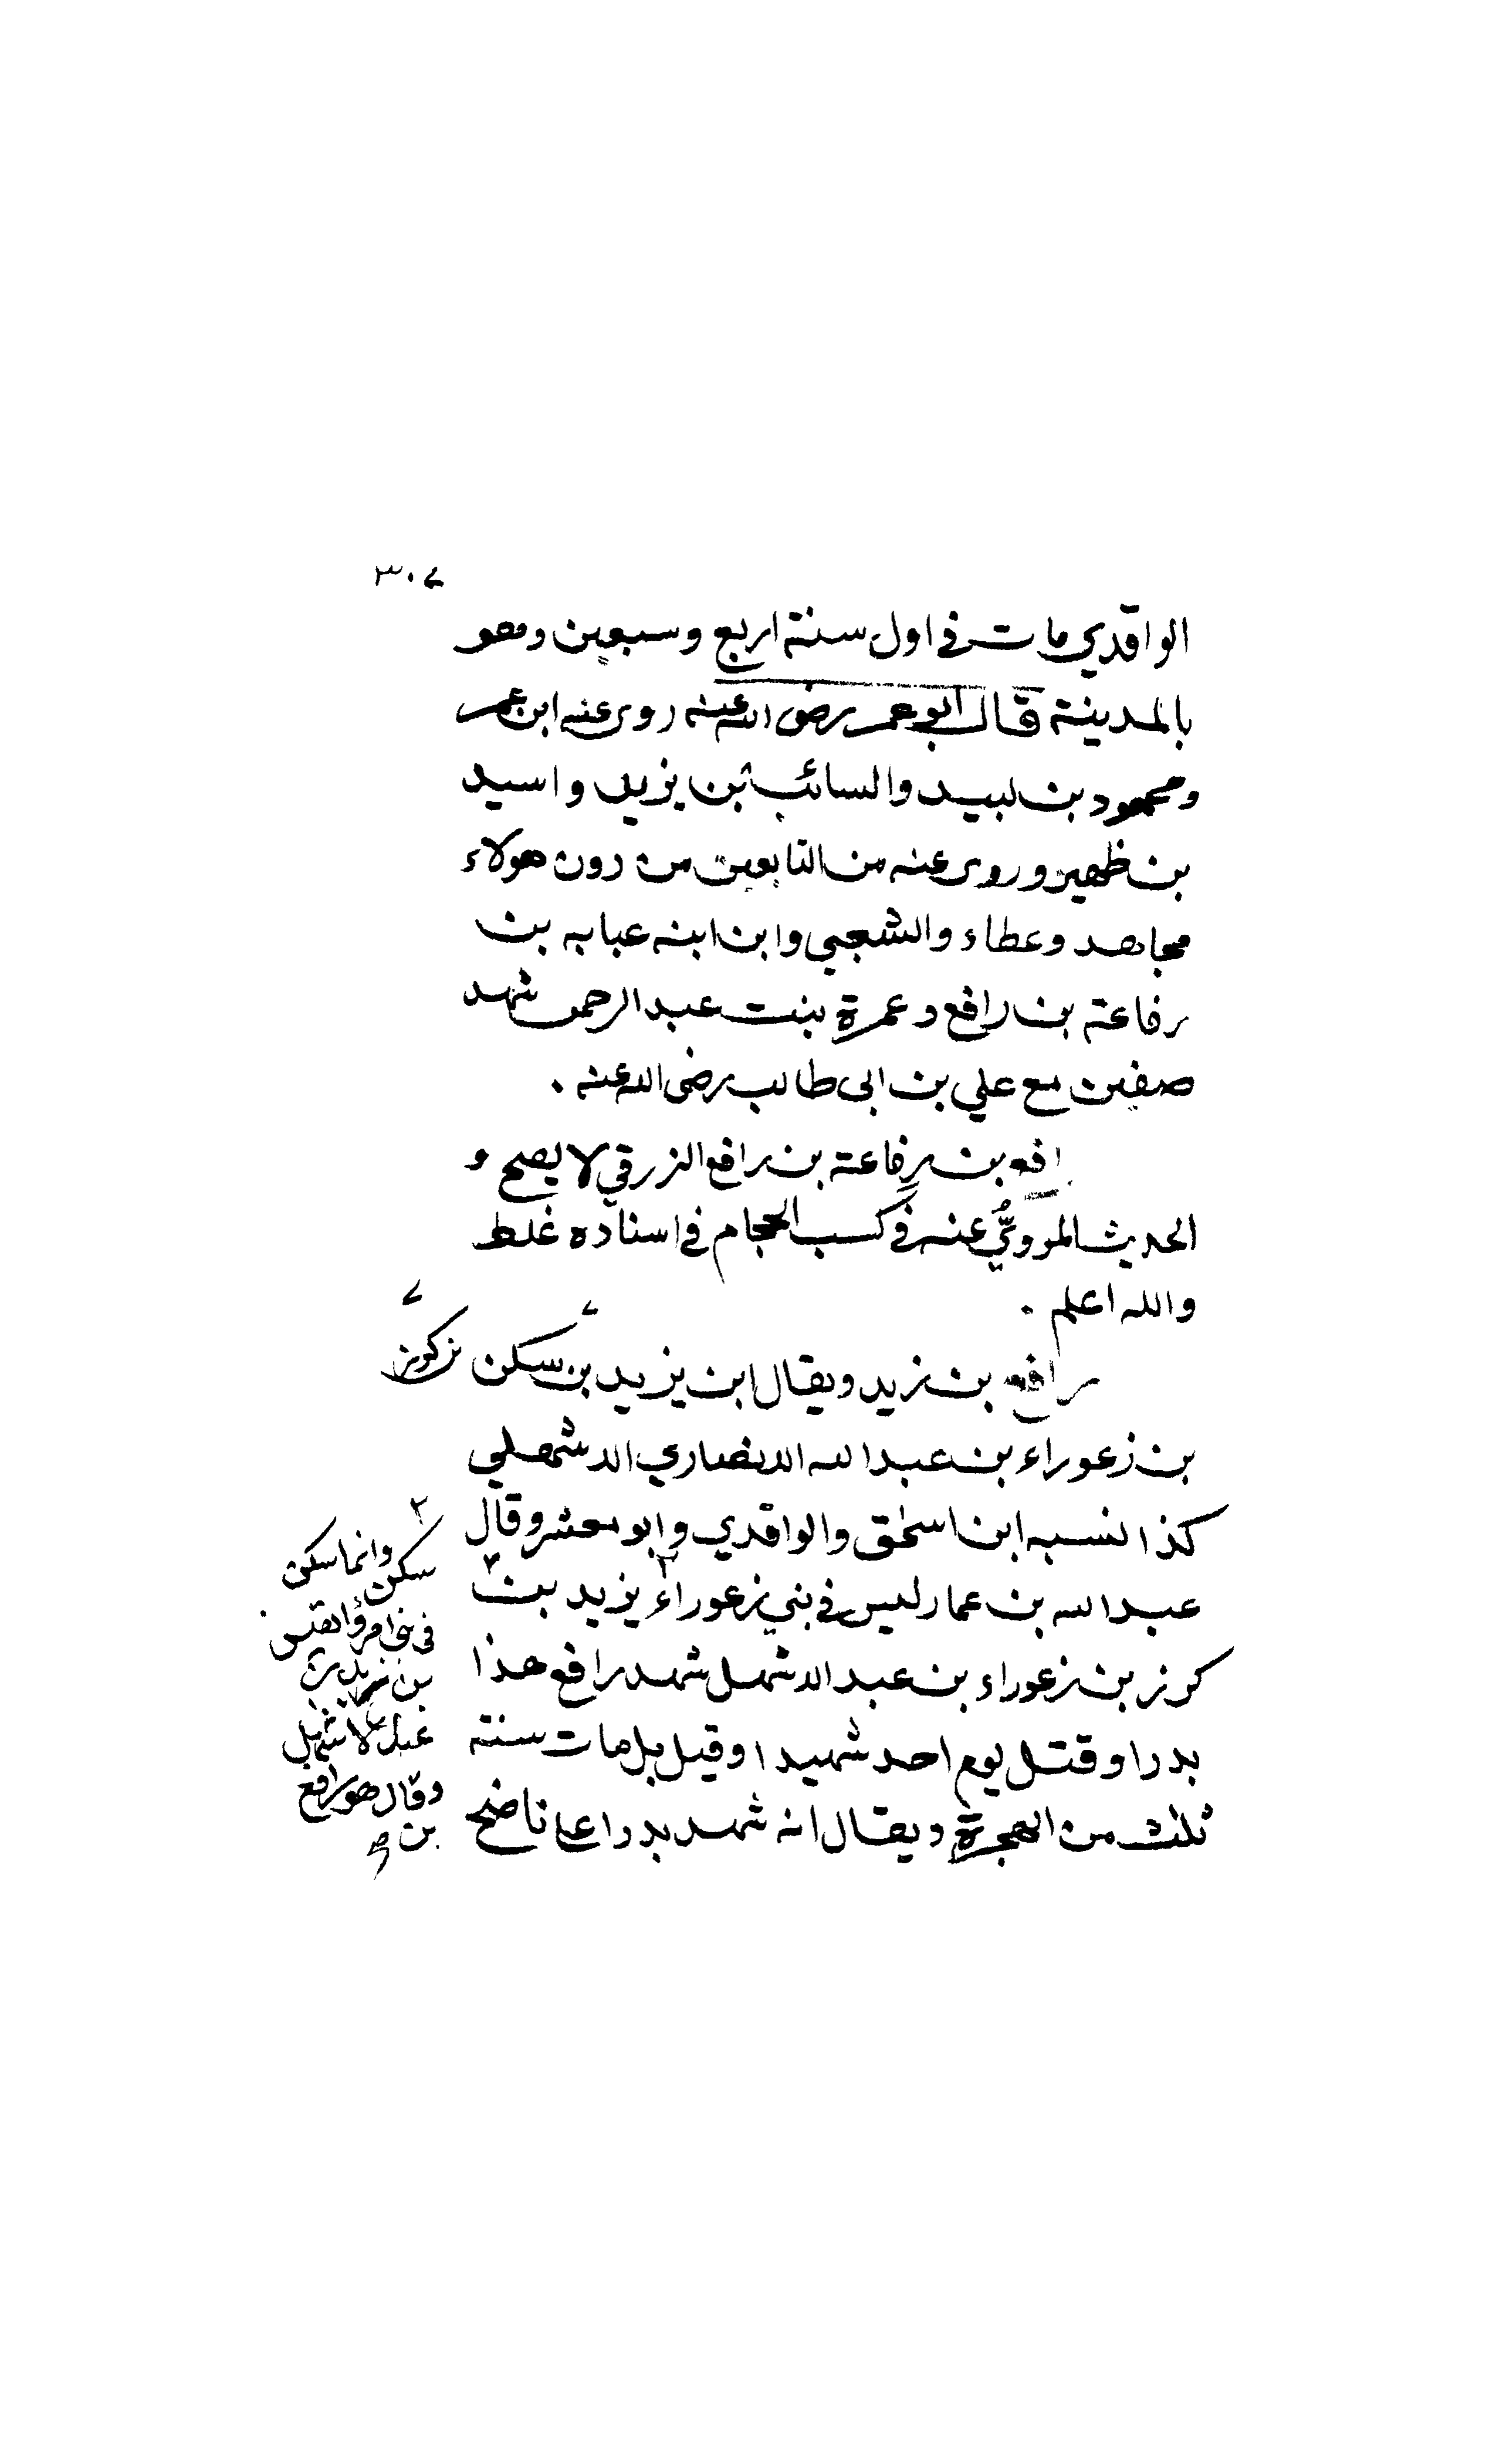 ٣٠٧
الواقدي مات في اول سنة اربع وسبعين وهو
بالمدينة قال ابو عمر رضى الله عنه روى عنه ابن عمر
ومحمود بن لبيد والسائب بن يزيد واسيد
بن ظهير وروى عنه من التابعين من دون هولاء
مجاهد وعطاء والشعبي وابن ابنه عبايه بن
رفاعة بن رافع وعمرة بنت عبد الرحمن شهد
صفين مع علي بن ابى طالب رضى الله عنه .
رافع بن رفاعة بن رافع الزرقي لا يصح و
الحديث المروي عنه في كسب الحجام في اسناده غلط
والله اعلم .
رافع بن زيد ويقال ابن يزيد بن سكن بن كرز
بن زعوراء بن عبد الله الانصاري الاشهلي
كذا نسبه ابن اسحق والواقدي وابو معشر وقال
عبد الله بن عمار ليس في بني زعوراء يزيد بن
كرز بن زعوراء بن عبد الاشهل شهد رافع هذا
بدرا وقتل يوم احد شهيدا وقيل بل مات سنة
ثلث من الهجرة ويقال انه شهد بدرا على ناضح
٢
سكن وانما سكن
في بني امرؤ القيس
بن زيد بن
عبد الاشهل
وقال هو رافع
بن